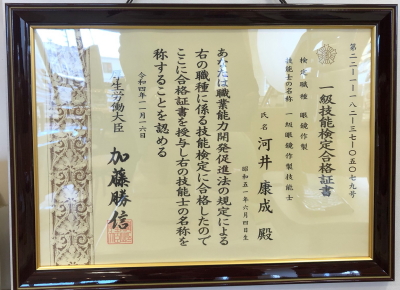 第二二-一-一八二-三七-〇五〇七九号
一級技能検定合格証書
検定職種 眼鏡作製
技能士の名称 一級眼鏡作製技能士
氏名 河井 康成 殿
昭和五一年六月四日生
あなたは職業能力開発促進法の規定による
右の職種に係る技能検定に合格したので
ここに合格証書を授与し右の技能士の名称を
称することを認める
令和四年一一月一六日
厚生労働大臣 加藤勝信